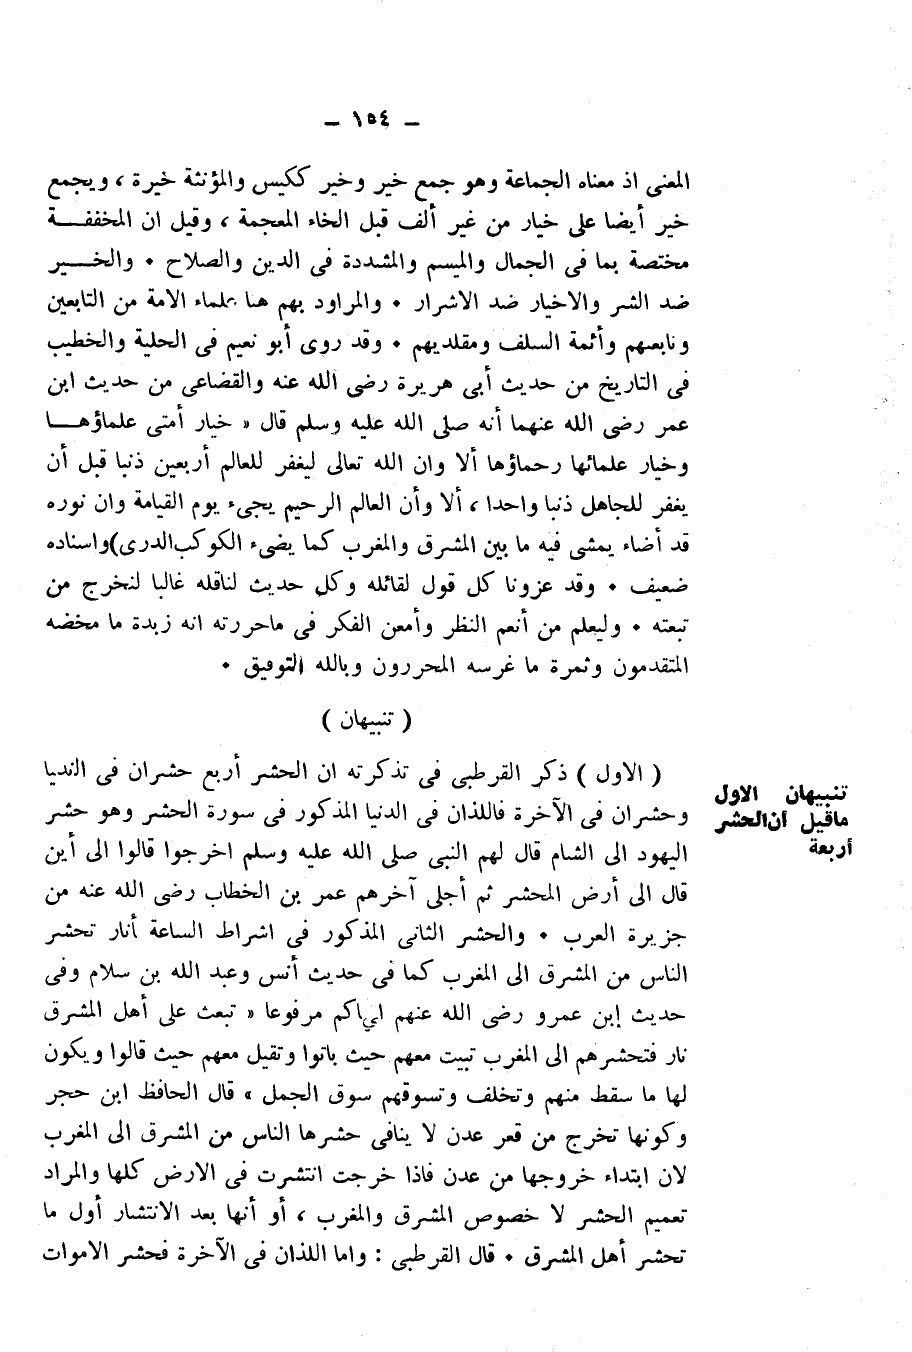 – ١٥٤ –
المعنى اذ معناه الجماعة وهو جمع خير وخير ككيس والمؤنثة خيرة ، ويجمع
خير أيضا على خيار من غير ألف قبل الخاء المعجمة ، وقيل ان المخففة
مختصة بما فى الجمال والميسم والمشددة فى الدين والصلاح • والخير
ضد الشر والاخيار ضد الاشرار • والمراود بهم هنا علماء الامة من التابعين
وتابعيهم وأئمة السلف ومقلديهم • وقد روى أبو نعيم فى الحلية والخطيب
فى التاريخ من حديث أبى هريرة رضى الله عنه والقضاعى من حديث ابن
عمر رضى الله عنهما أنه صلى الله عليه وسلم قال « خيار أمتى علماؤها
وخيار علمائها رحماؤها ألا وان الله تعالى ليغفر للعالم أربعين ذنبا قبل أن
يغفر للجاهل ذنبا واحدا ، ألا وأن العالم الرحيم يجىء يوم القيامة وان نوره
قد أضاء يمشى فيه ما بين المشرق والمغرب كما يضىء الكوكب الدرى)واسناده
ضعيف • وقد عزونا كل قول لقائله وكل حديث لناقله غالبا لنخرج من
تبعته • وليعلم من أنعم النظر وأمعن الفكر فى ماحررته انه زبدة ما مخضه
المتقدمون وثمرة ما غرسه المحررون وبالله التوفيق •
( تنبيهان )
( الاول ) ذكر القرطبى فى تذكرته ان الحشر أربع حشران فى الدنيا
وحشران فى الآخرة فاللذان فى الدنيا المذكور فى سورة الحشر وهو حشر
اليهود الى الشام قال لهم النبى صلى الله عليه وسلم اخرجوا قالوا الى أين
قال الى أرض المحشر ثم أجلى آخرهم عمر بن الخطاب رضى الله عنه من
جزيرة العرب • والحشر الثانى المذكور فى اشراط الساعة أنار تحشر
الناس من المشرق الى المغرب كما فى حديث أنس وعبد الله بن سلام وفى
حديث إبن عمرو رضى الله عنهم اياكم مرفوعا « تبعث على أهل المشرق
نار فتحشرهم الى المغرب تبيت معهم حيث باتوا وتقيل معهم حيث قالوا ويكون
لها ما سقط منهم وتخلف وتسوقهم سوق الجمل » قال الحافظ ابن حجر
وكونها تخرج من قعر عدن لا ينافى حشرها الناس من المشرق الى المغرب
لان ابتداء خروجها من عدن فاذا خرجت انتشرت فى الارض كلها والمراد
تعميم الحشر لا خصوص المشرق والمغرب ، أو أنها بعد الانتشار أول ما
تحشر أهل المشرق • قال القرطبى : واما اللذان فى الآخرة فحشر الاموات
تنبيهان الاول
ماقيل أن الحشر
أربعة